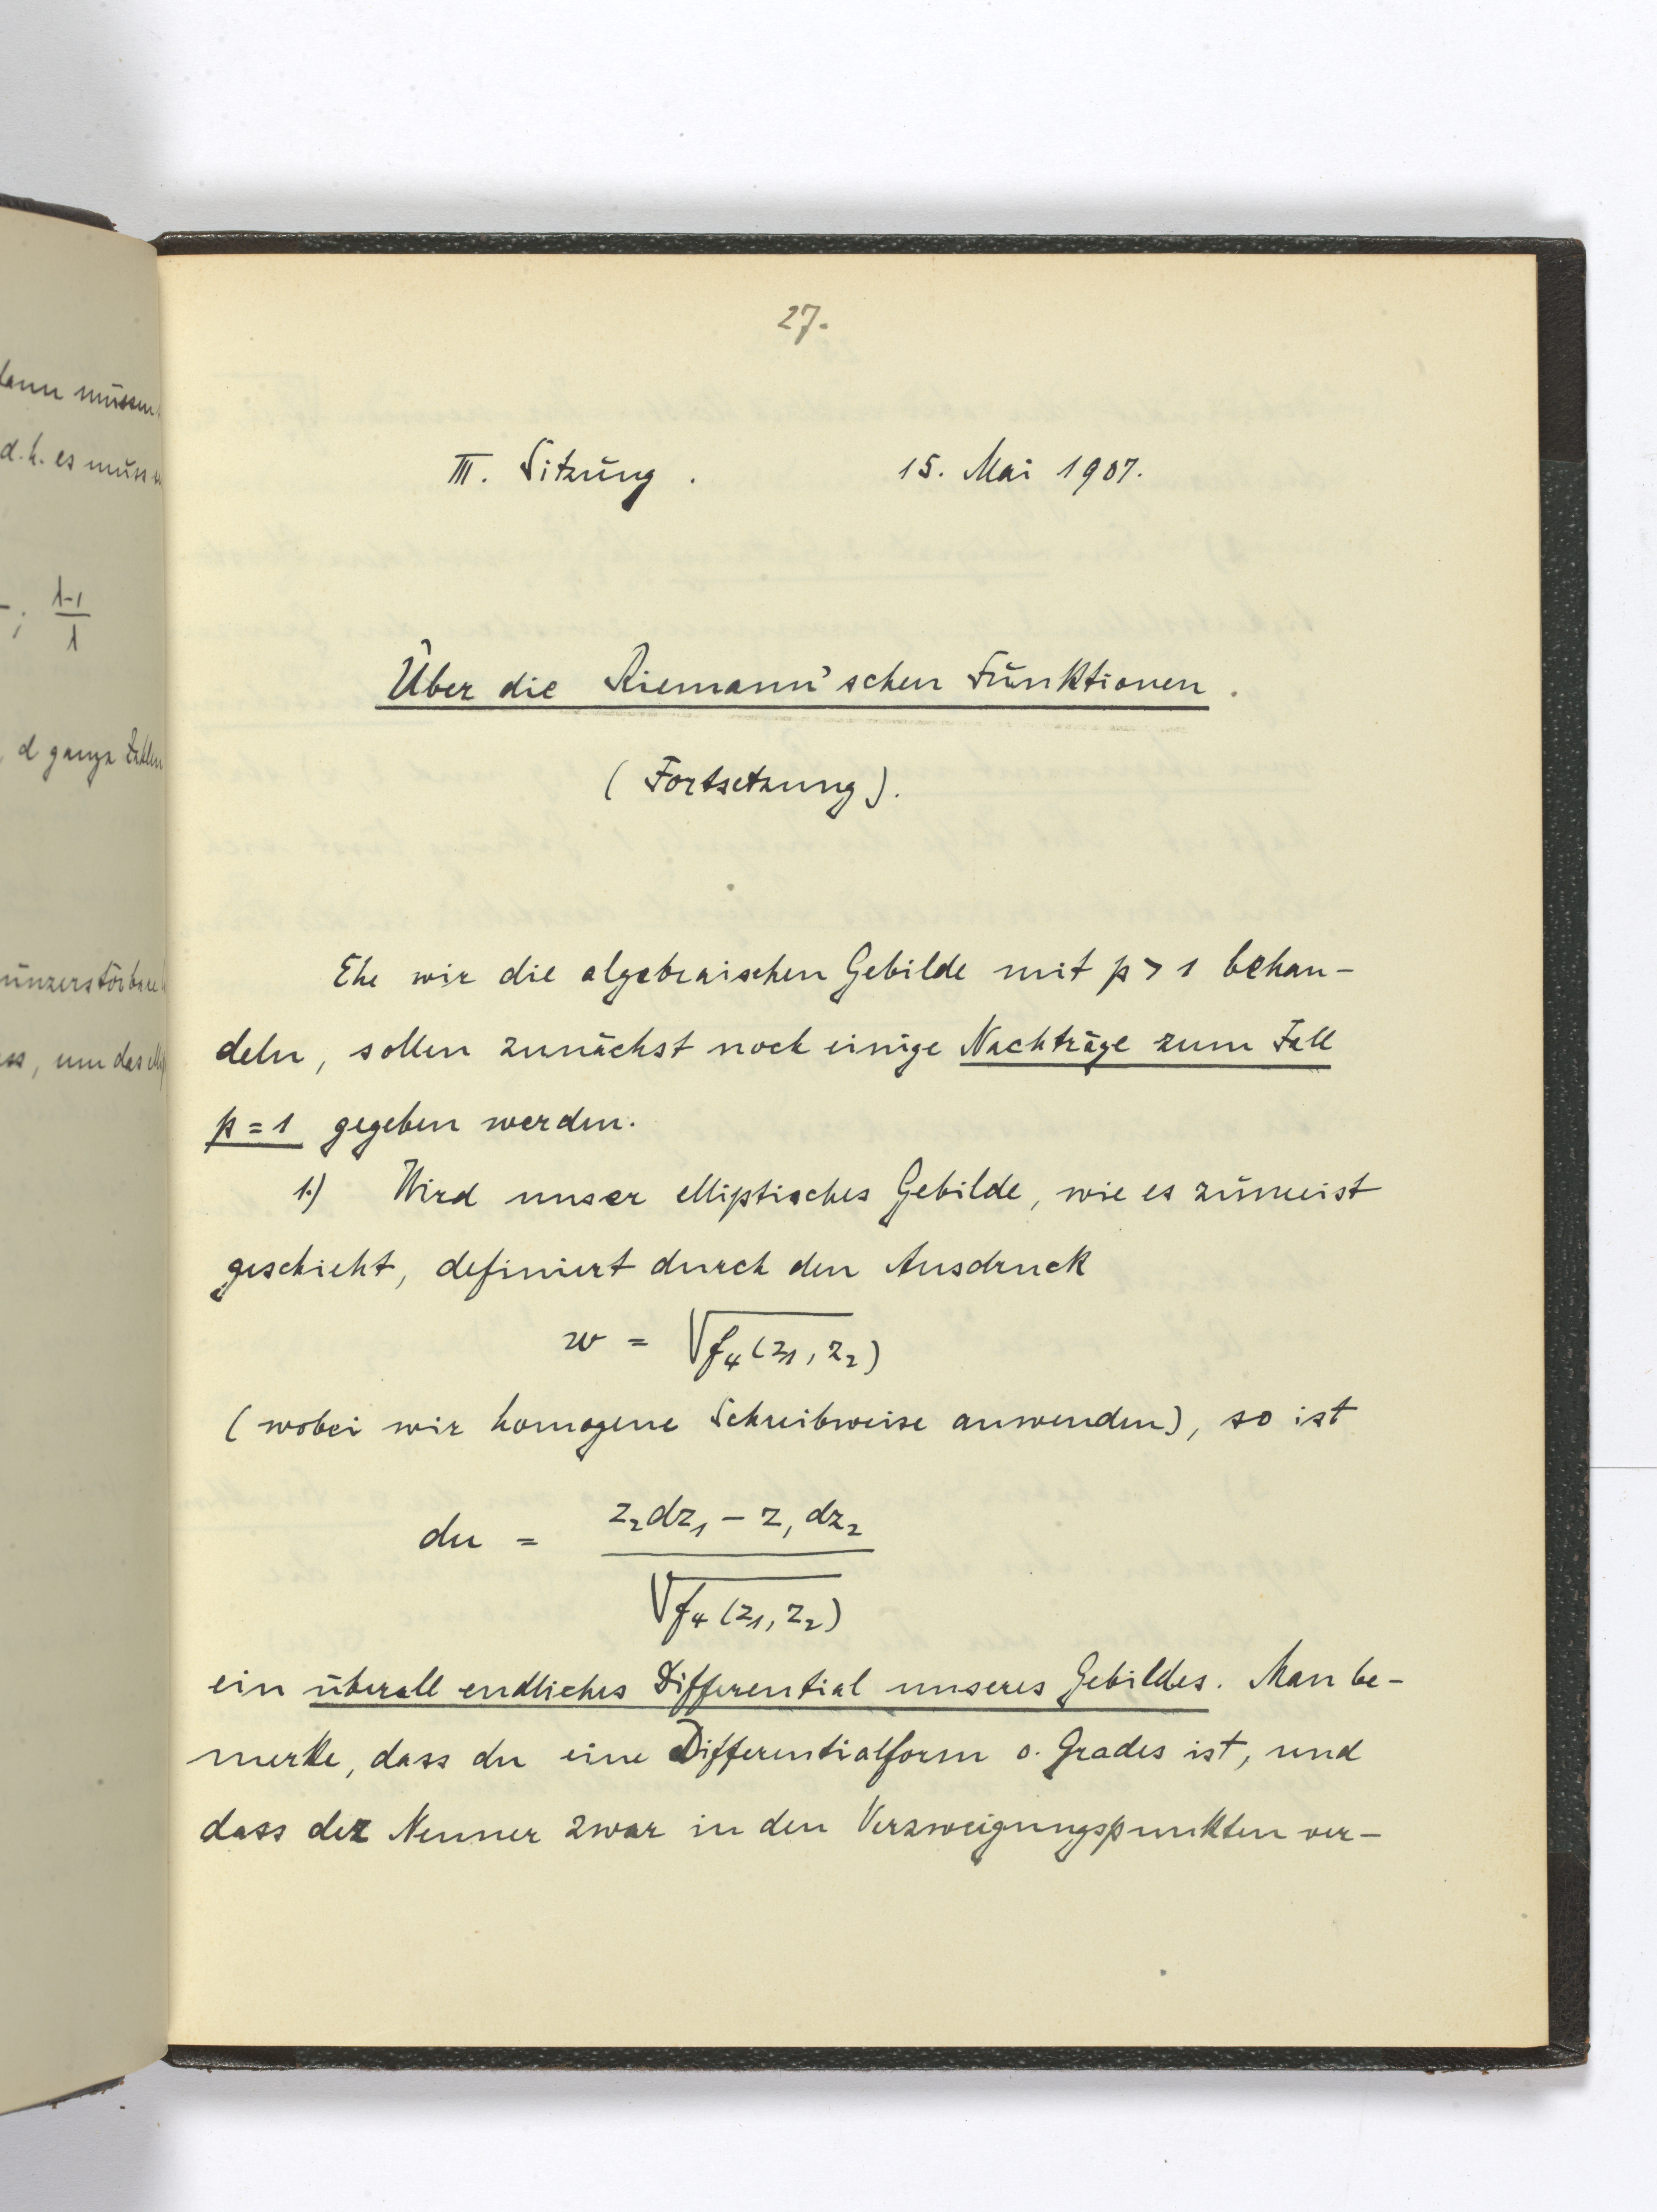 dann müssen
d.h. es müss
; λ-1/λ
d ganze Zahlen
unzerstörbare
ss, um das
27.
III. Sitzung. 15. Mai 1907.
Über die Riemann'schen Funktionen.
(Fortsetzung).
Ehe wir die algebraischen Gebilde mit p > 1 behan-
deln, sollen zunächst noch einige Nachträge zum Fall
p = 1 gegeben werden.
1.) Wird unser elliptisches Gebilde, wie es zumeist
geschieht, definiert durch den Ausdruck
w = √f₄(z₁, z₂)
(wobei wir homogene Schreibweise anwenden), so ist
du = (z₂dz₁ – z₁dz₂) / √f₄(z₁, z₂)
ein überall endliches Differential unseres Gebildes. Man be-
merke, dass du eine Differentialform 0. Grades ist, und
dass der Nenner zwar in den Verzweigungspunkten ver-